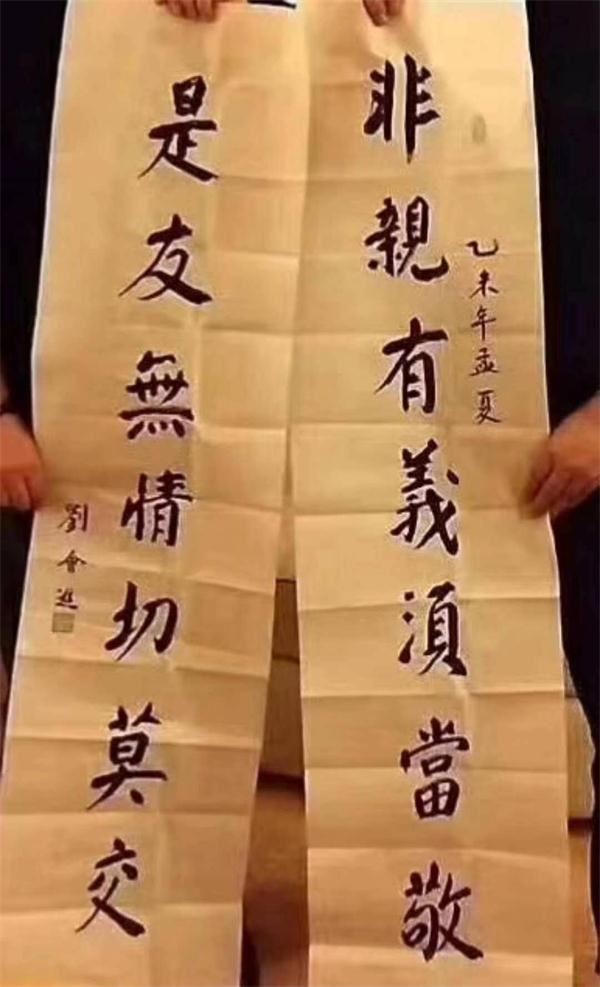 非親有義湏當敬
乙未年孟夏
是友無情切莫交
劉會進